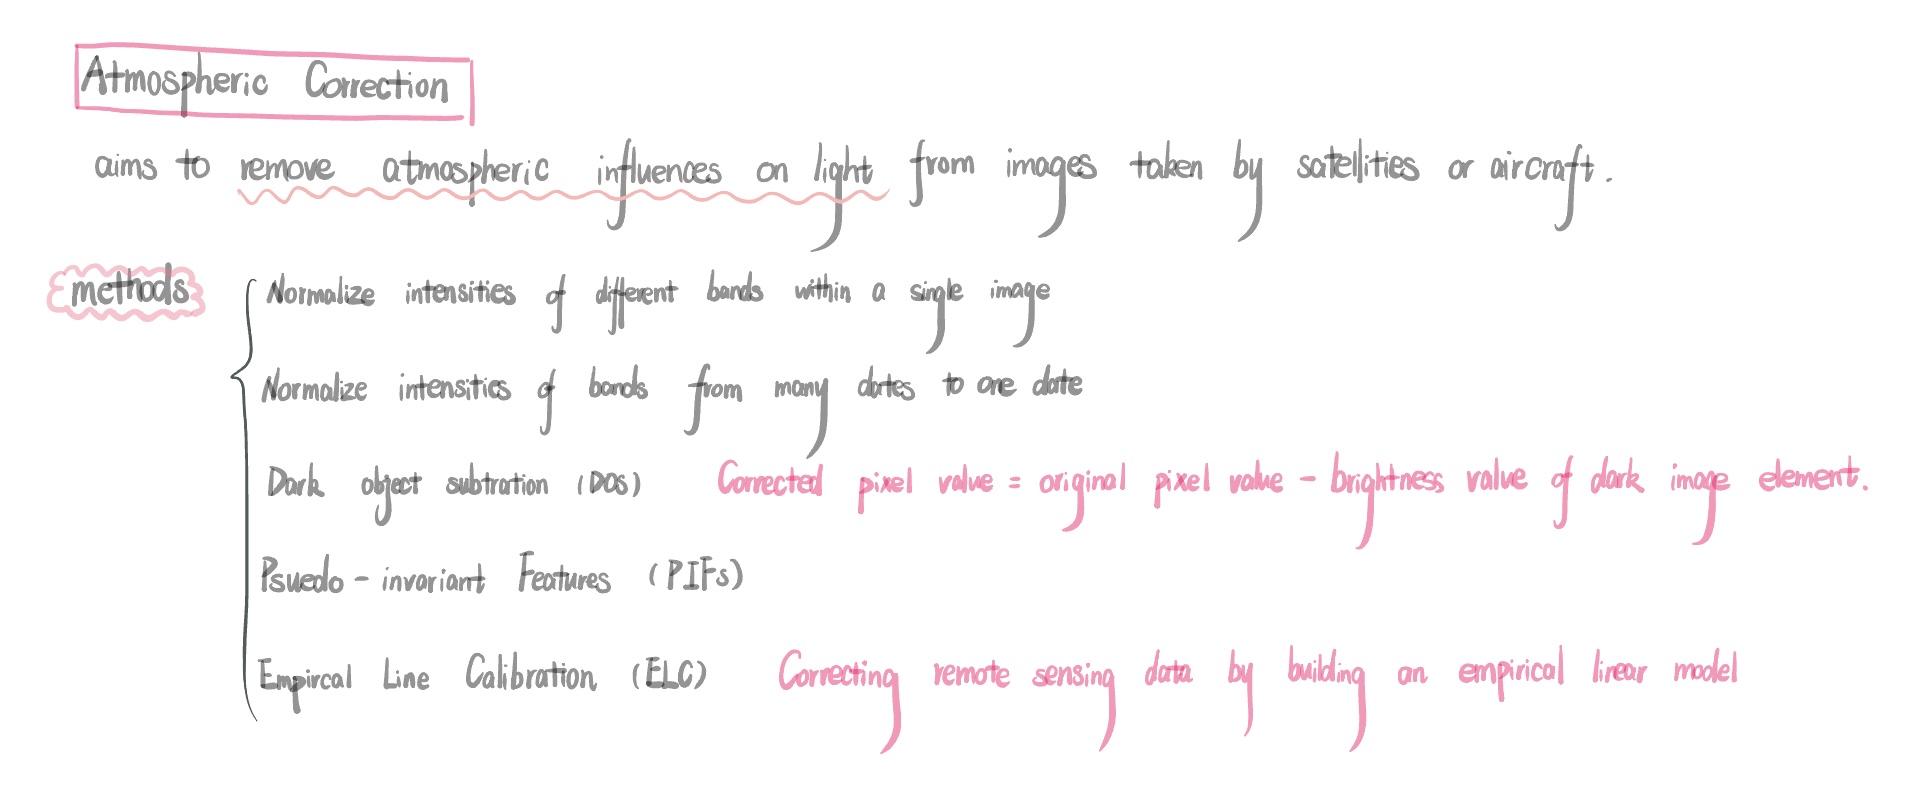 Atmospheric Correction
aims to remove atmospheric influences on light from images taken by satellities or aircraft.
methods
Normalize intensities of different bands within a single image
Normalize intensities of bands from many dates to one date
Dark object subtration (DOS) Corrected pixel value = original pixel value - brightness value of dark image element.
Psuedo-invariant Features (PIFs)
Empircal Line Calibration (ELC) Correcting remote sensing data by building an empirical linear model